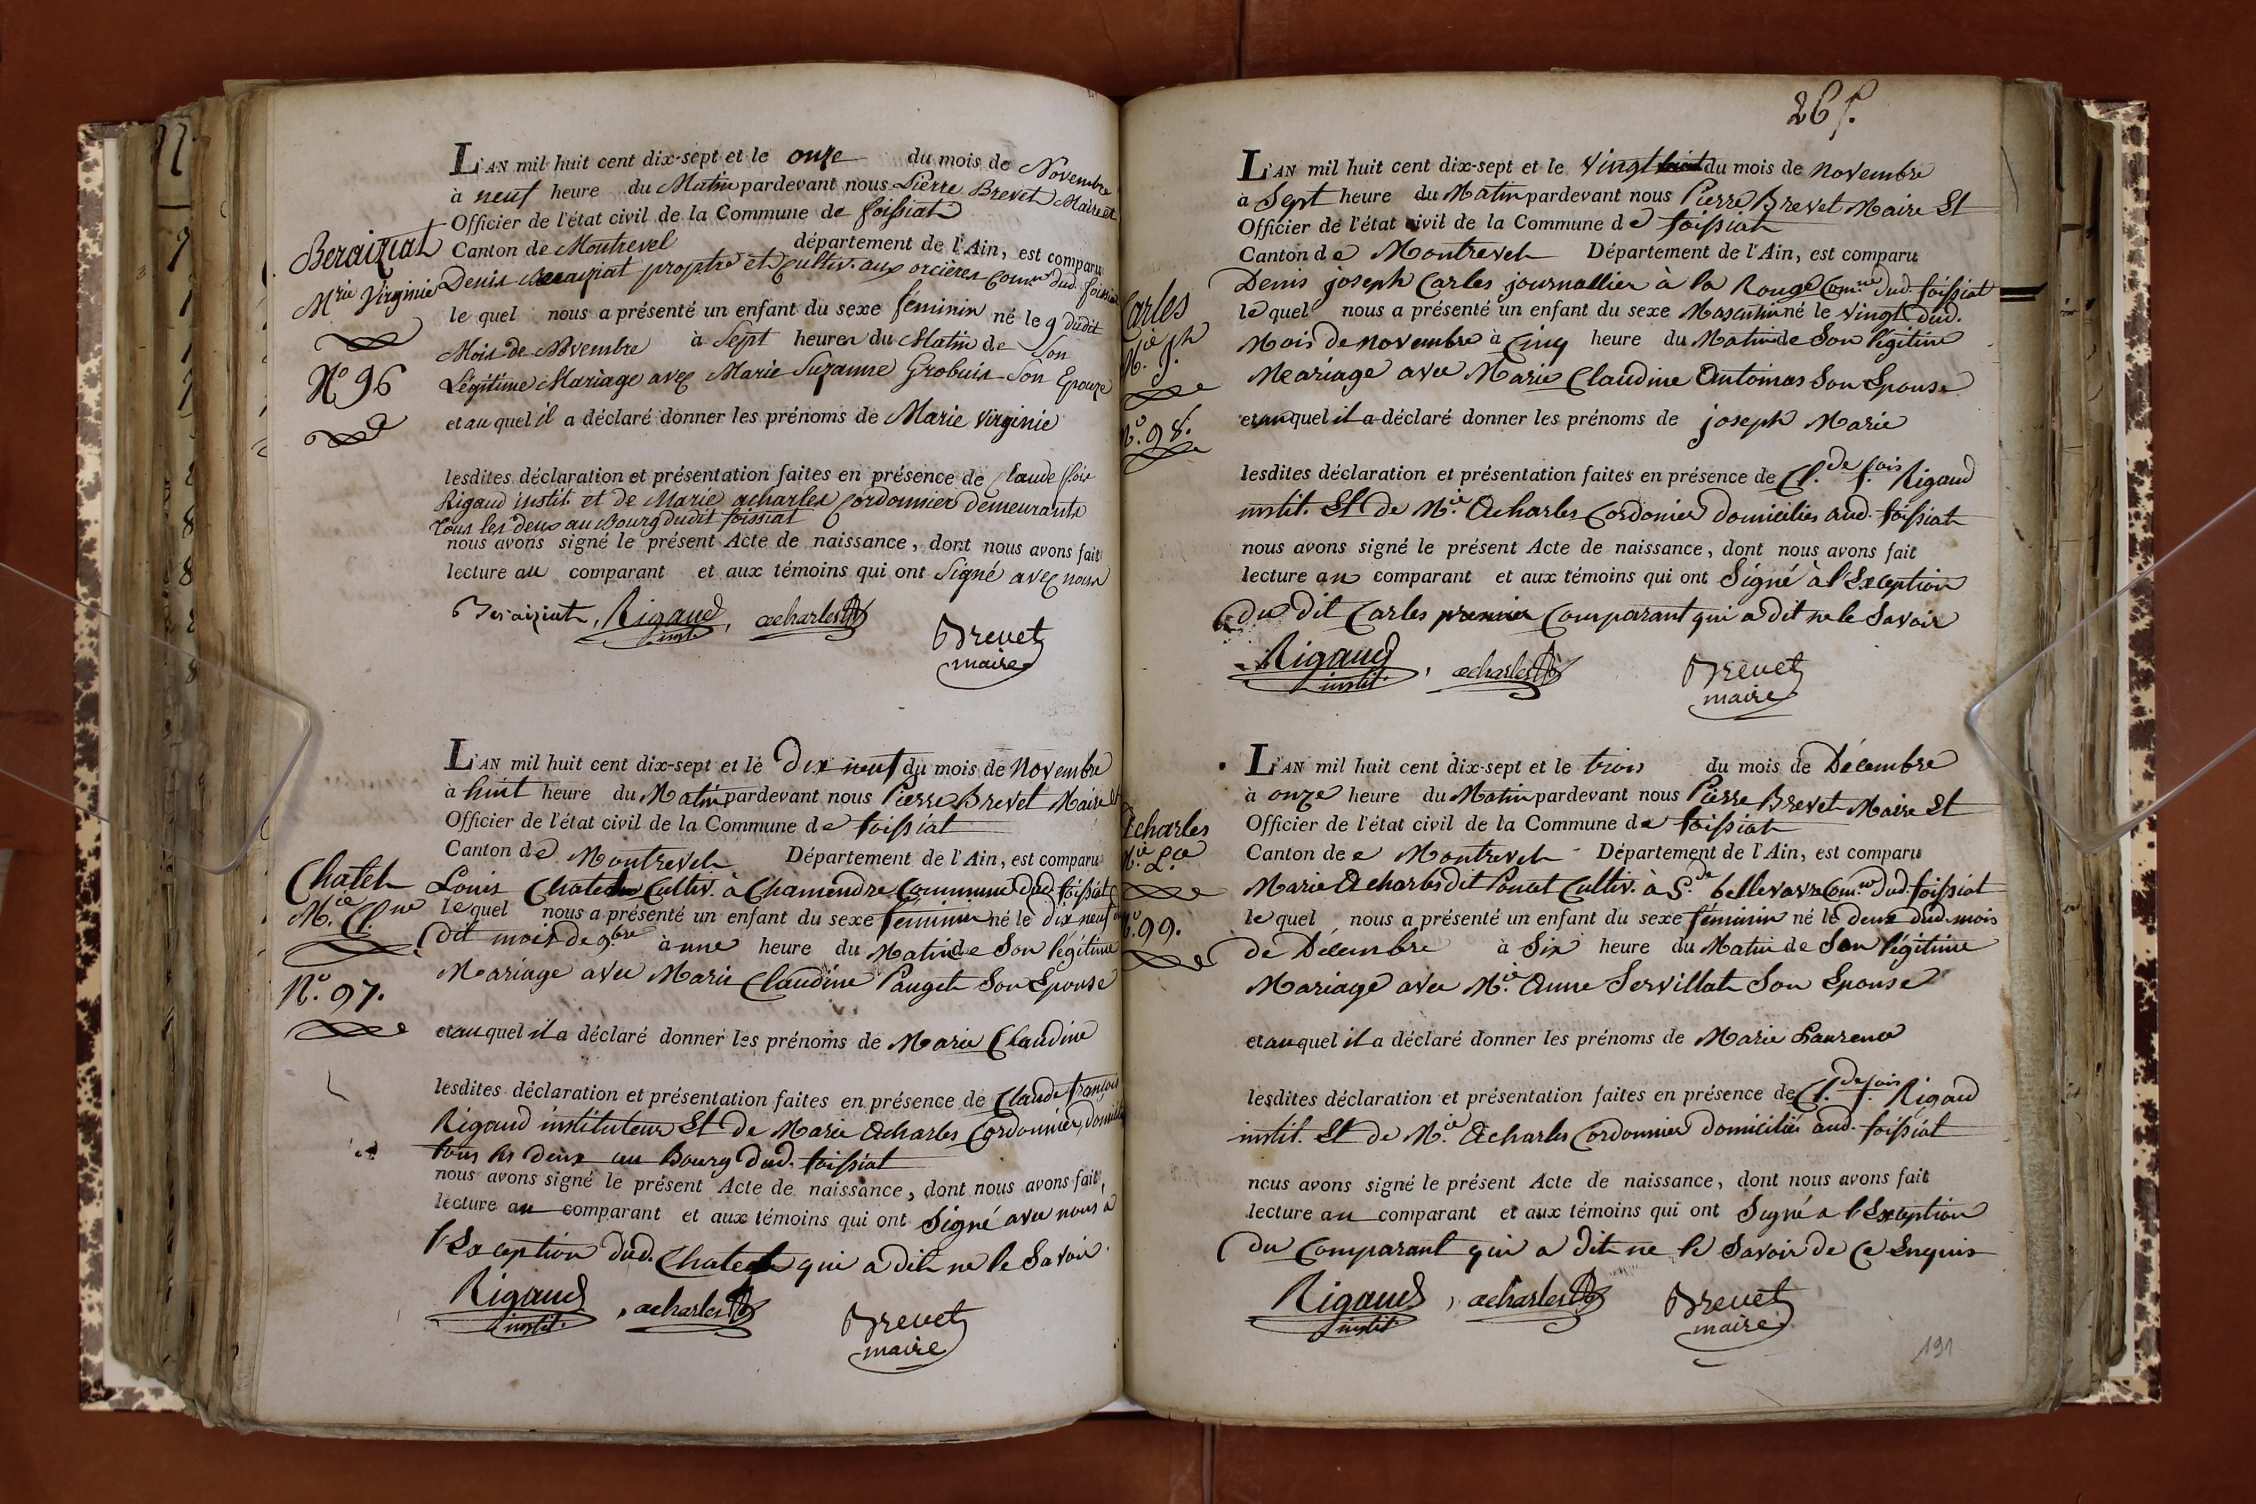 Beraiziat
Mrie Virginie
No 96
L'AN mil huit cent dix-sept et le onze du mois de Novembre
à neuf heure du Matin pardevant nous Pierre Brevet Maire et
Officier de l'état civil de la Commune de foissiat
Canton de Montrevel département de l'Ain, est comparu
Denis Beraiziat proptre et Cultiv. aux orcières Comne dud. foissiat
le quel nous a présenté un enfant du sexe féminin né le 9 dudit
Mois de Novembre à Sept heures du Matin de Son
Légitime Mariage avec Marie Suzanne Grobuis Son Epouze
et au quel il a déclaré donner les prénoms de Marie Virginie
lesdites déclaration et présentation faites en présence de Claude fois
Rigaud instit. et de Marie acharles Cordonnier demeurants
Tous les deux au Bourg dudit foissiat
nous avons signé le présent Acte de naissance, dont nous avons fait
lecture au comparant et aux témoins qui ont Signé avec nous
Beraiziat, Rigaud, acharles
instit.
Brevet
maire
Chatel
Mie Clne
No. 97.
L'AN mil huit cent dix-sept et le Dix neuf du mois de Novembre
à huit heure du Matin pardevant nous Pierre Brevet Maire et
Officier de l'état civil de la Commune de foissiat
Canton de Montrevel Département de l'Ain, est comparu
Louis Chatel Cultiv. à Chamendre Commune dud. foissiat
le quel nous a présenté un enfant du sexe féminin né le dix neuf du
dit mois de 9.bre à une heure du Matin de Son légitime
Mariage avec Marie Claudine Pauget Son Epouse
et au quel il a déclaré donner les prénoms de Marie Claudine
lesdites déclaration et présentation faites en présence de Claude françois
Rigaud instituteur Et de Marie Acharles Cordonnier,
tous les deux au Bourg Dud. foissiat
nous avons signé le présent Acte de naissance, dont nous avons fait
lecture au comparant et aux témoins qui ont Signé avec nous à
l'Exception dud. Chatel qui a dit ne le Savoir.
Rigaud, acharles
instit.
Brevet
maire
265.
Carles
Mie Jph
No. 98.
L'AN mil huit cent dix-sept et le Vingt du mois de Novembre
à Sept heure du Matin pardevant nous Pierre Brevet Maire Et
Officier de l'état civil de la Commune de foissiat
Canton de Montrevel Département de l'Ain, est comparu
Denis joseph Carles journallier à la Rouge Comne dud. foissiat
le quel nous a présenté un enfant du sexe Masculin né le Vingt dud.
Mois de Novembre à Cinq heure du Matin de Son légitime
Mariage avec Marie Claudine Antoinas Son Epouse
et au quel il a déclaré donner les prénoms de joseph Marie
lesdites déclaration et présentation faites en présence de Cl.de f.ois Rigaud
instit. Et de M.ie Acharles Cordonier domiciliés aud. foissiat
nous avons signé le présent Acte de naissance, dont nous avons fait
lecture au comparant et aux témoins qui ont Signé à l'Exception
du dit Carles premier Comparant qui a dit ne le Savoir
Rigaud, acharles
instit.
Brevet
maire
Acharles
Mie L.ce
No. 99.
L'AN mil huit cent dix-sept et le trois du mois de Décembre
à onze heure du Matin pardevant nous Pierre Brevet Maire Et
Officier de l'état civil de la Commune de foissiat
Canton de Montrevel Département de l'Ain, est comparu
Marie Acharles dit Poncet Cultiv. à G.de bellevavre Com.ne dud. foissiat
le quel nous a présenté un enfant du sexe féminin né le deux dud. mois
de Décembre à Six heure du Matin de Son légitime
Mariage avec M.ie Anne Servillat Son Epouse
et au quel il a déclaré donner les prénoms de Marie Laurence
lesdites déclaration et présentation faites en présence de Cl.de f.ois Rigaud
instit. Et de M.ie Acharles Cordonnier domiciliés aud. foissiat
nous avons signé le présent Acte de naissance, dont nous avons fait
lecture au comparant et aux témoins qui ont Signé à l'Exception
du Comparant qui a dit ne le Savoir de Ce Enquis
Rigaud, acharles
instit.
Brevet
maire
191